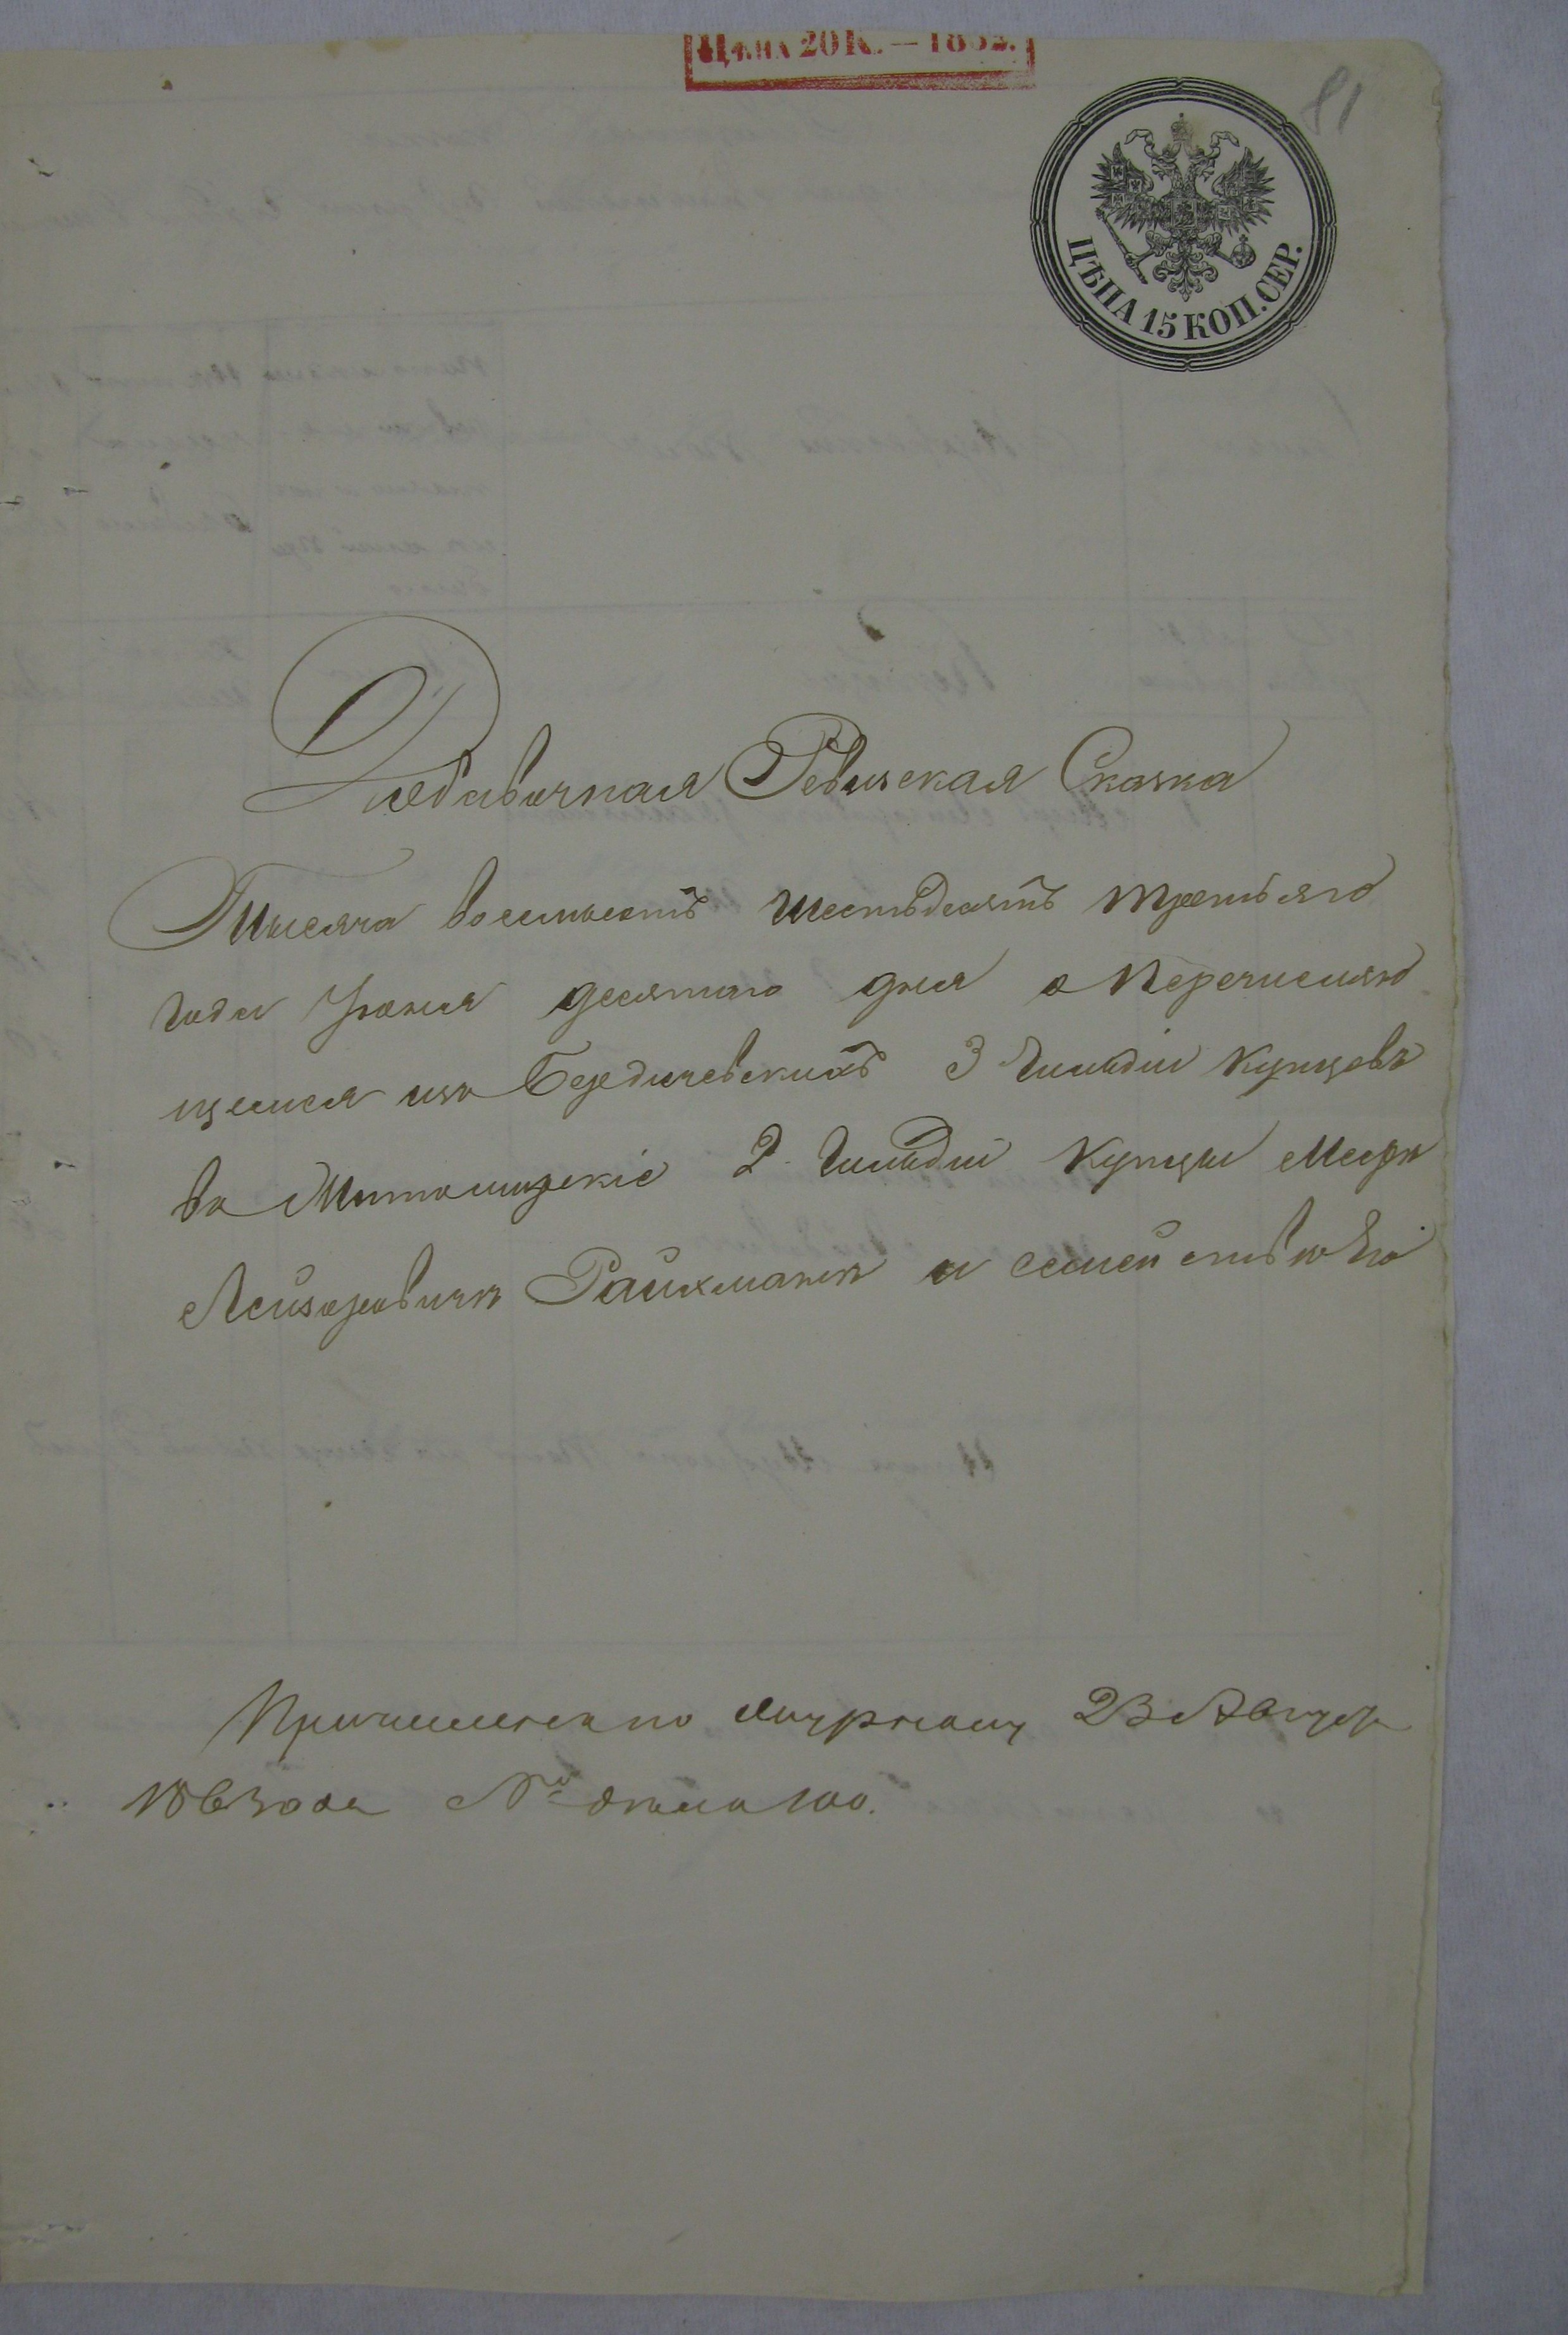 Цѣна 20 К. — 1862.
81
ЦѢНА 15 КОП. СЕР.
Добавочная Ревизская Сказка
Тысяча восемьсотъ шестьдесятъ третьяго
года Іюня десятаго дня о перечисляю
щемся изъ Бердичевскихъ 3 Гильдіи купцовъ
въ 2. Гильдіи купцы Мееръ
Лейзеровичъ Райхманъ и семействѣ его
по журналу 23 Августа
1863 года №